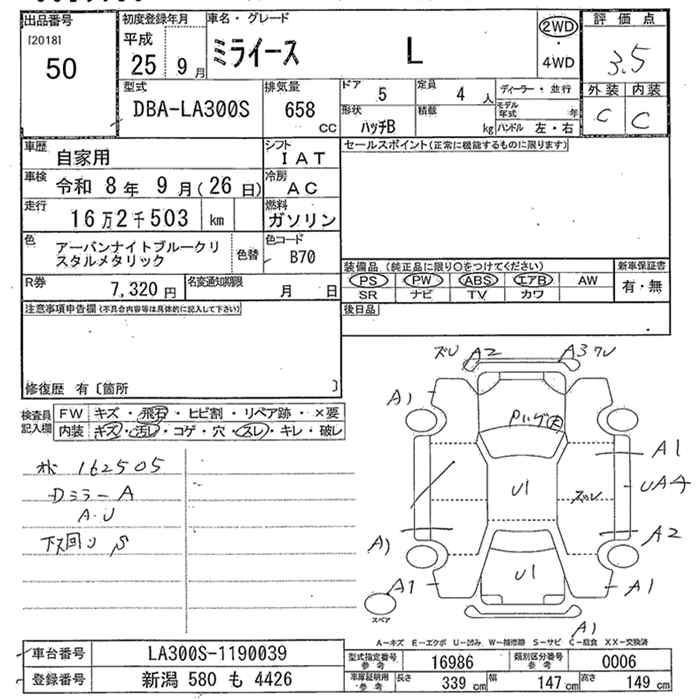 出品番号
[2018]
50
初度登録年月
平成
25年9月
車名・グレード
ミライース L
2WD
・
4WD
評価点
3.5
外装 内装
C C
型式
DBA-LA300S
排気量
658
cc
ドア
5
定員
4人
形状
ハッチB
積載
kg
ディーラー・並行
モデル年式 年
ハンドル 左・右
車歴
自家用
シフト
IAT
車検
令和 8年 9月(26日)
冷房
AC
走行
16万2千503 km
燃料
ガソリン
色
アーバンナイトブルークリスタルメタリック
色替
色コード
B70
R券
7,320円
名変通知期限
月 日
セールスポイント(正常に機能するものに限ります)
装備品 (純正品に限り○をつけてください)
PS PW ABS エアB AW
SR ナビ TV カワ
新車保証書
有・無
後日品
注意事項申告欄(不具合内容等は具体的に記入して下さい)
修復歴 有〔箇所 〕
検査員記入欄
FW キズ・飛石・ヒビ割・リペア跡・×要
内装 キズ・汚レ・コゲ・穴・スレ・キレ・破レ
162505
Dミラー A
A・U
下回り S
ズレ A2
A3 ズレ
A1
Pハゲ大
A1
UA4
U1
ズレ
A2
A)
U1
A1
A1
A1
スペア
A−キズ E−エクボ U−凹み W−補修跡 S−サビ C−腐食 XX−交換済
車台番号
LA300S-1190039
登録番号
新潟 580 も 4426
型式指定番号
参考
16986
類別区分番号
参考
0006
車庫証明用
参考
長さ
339 cm
幅
147 cm
高さ
149 cm